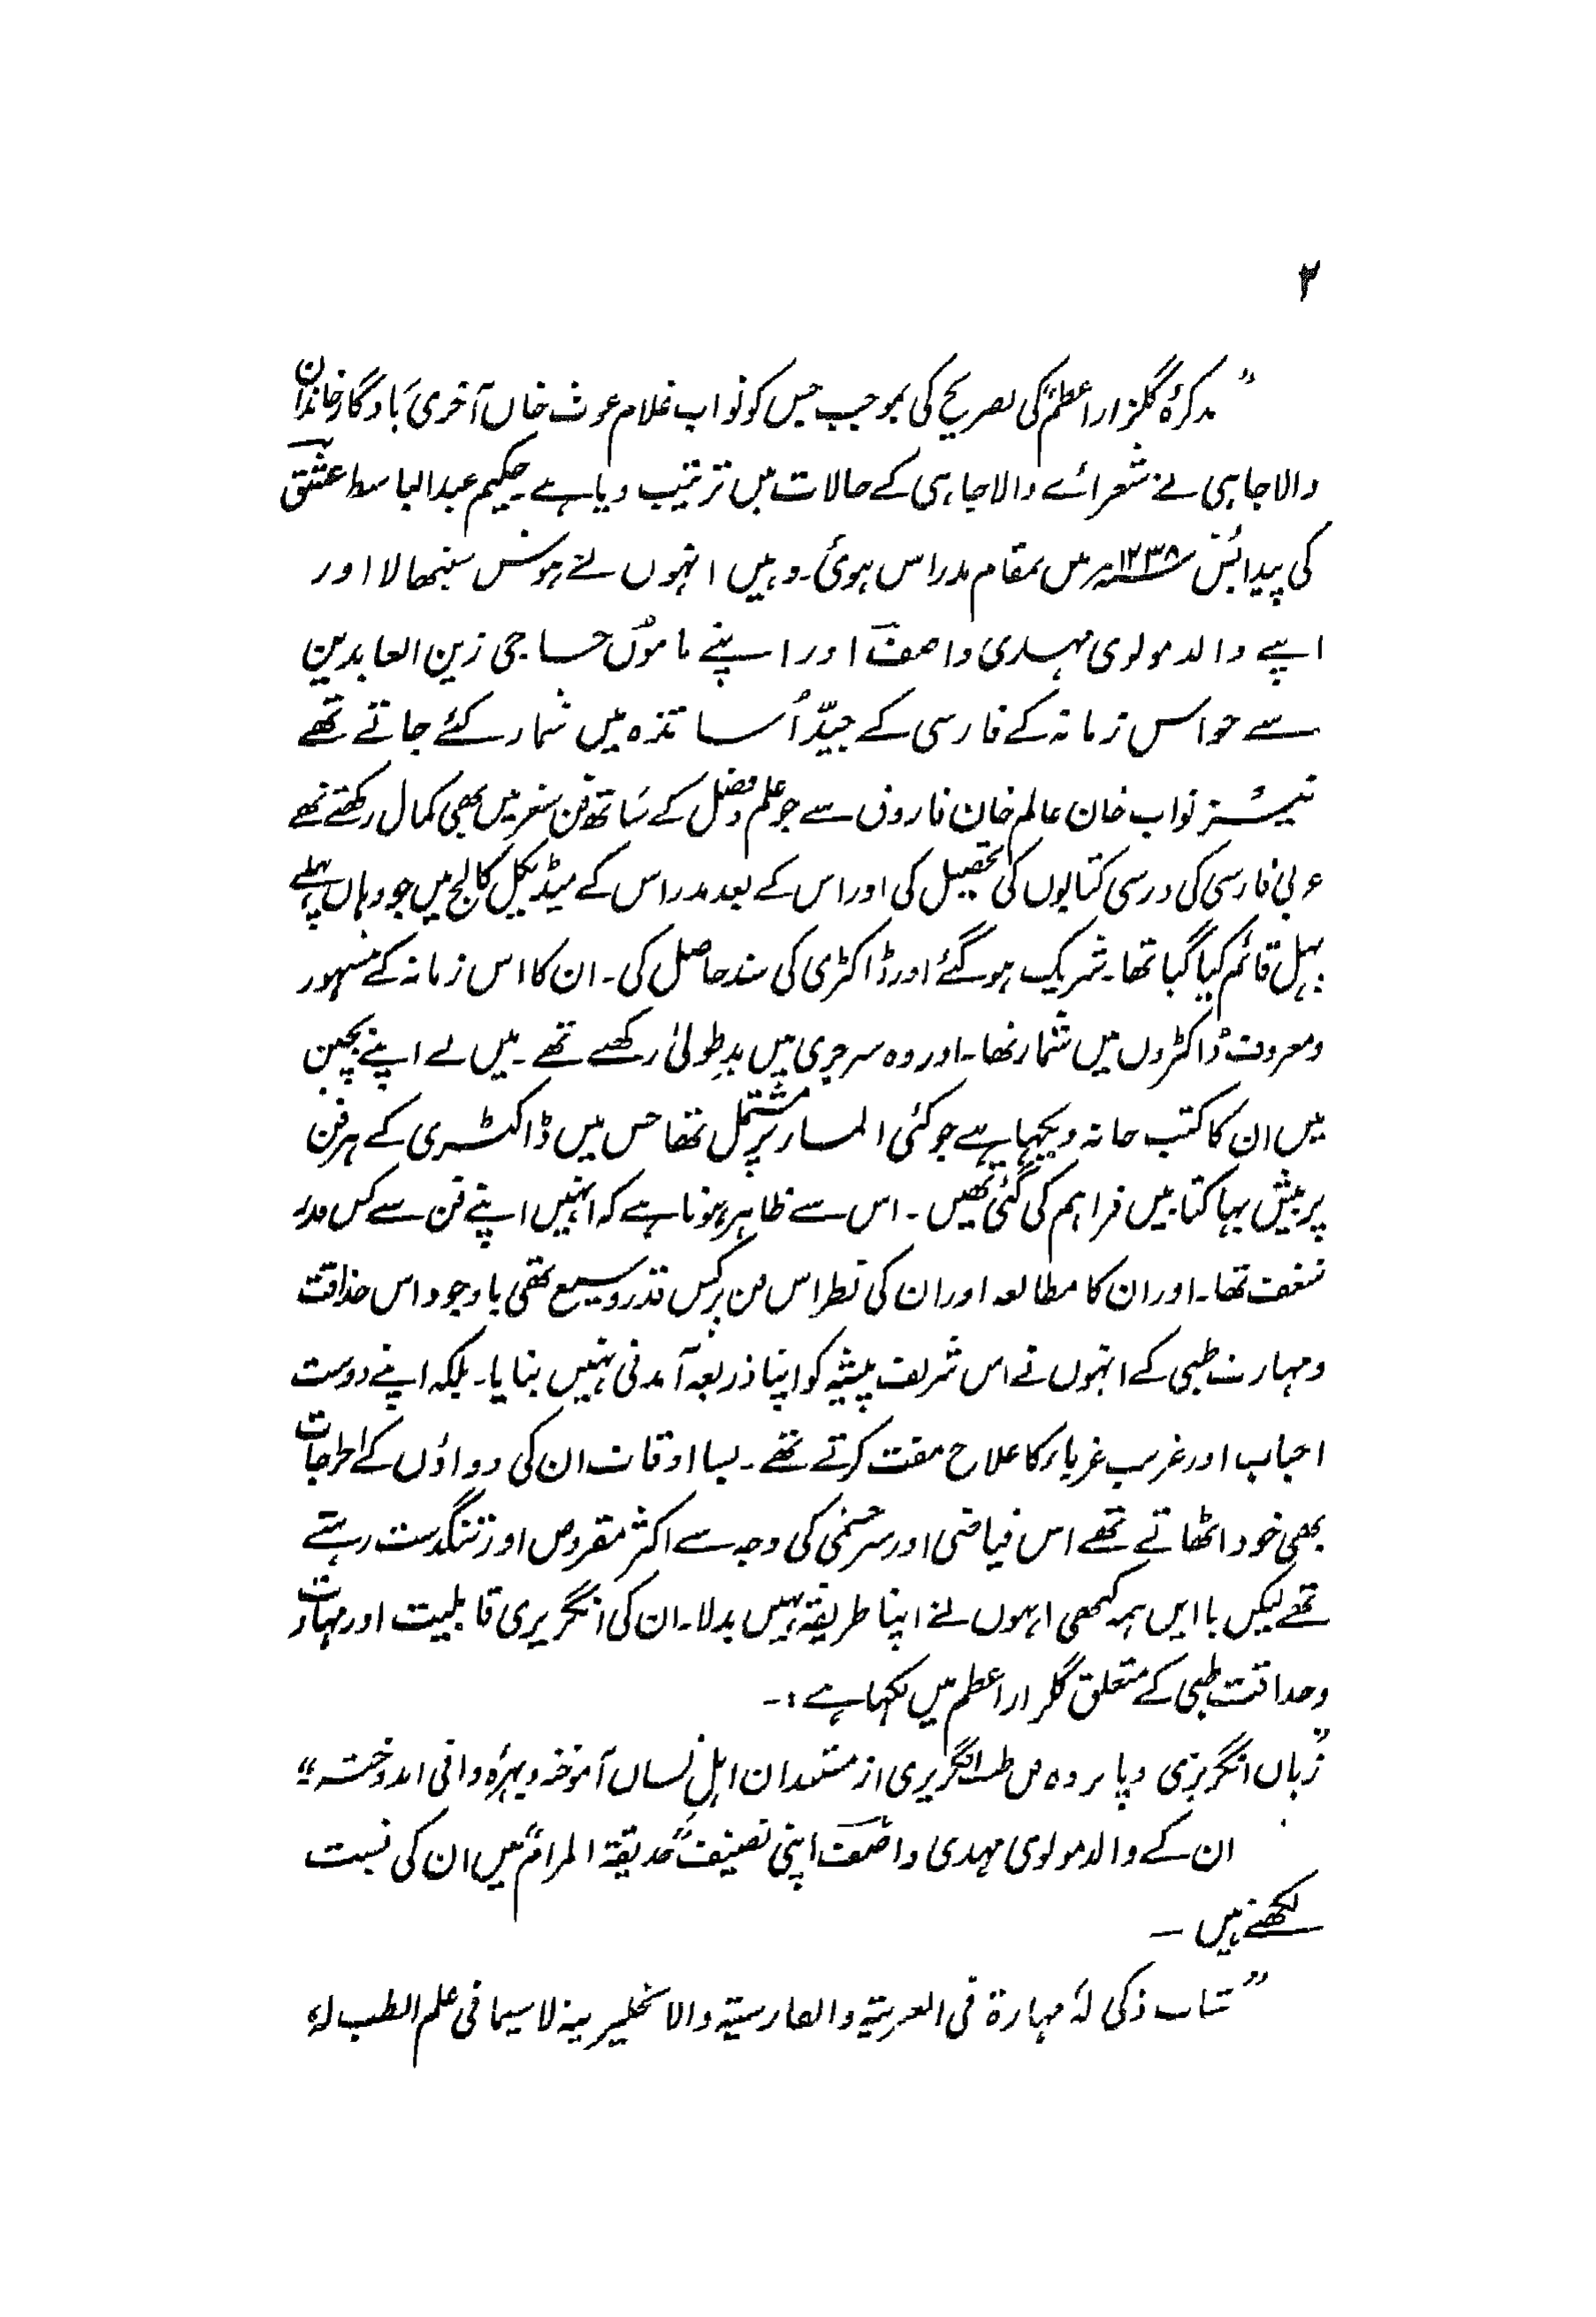 ۲
”تذکرۂ گلزار اعظم“ کی تصریح کی بموجب جس کو نواب غلام غوث خاں آخری یادگار خاندان
والاجاہی نے شعرائے والاجاہی کے حالات میں ترتیب دیا ہے حکیم عبدالباسط عشق
کی پیدائش ۱۲۳۸ھ میں بمقام مدراس ہوئی۔ وہیں انہوں نے ہوش سنبھالا اور
اپنے والد مولوی مہدی واصف اور اپنے ماموں حاجی زین العابدین
سے جو اس زمانہ کے فارسی کے جیّد اُساتذہ میں شمار کئے جاتے تھے
نیز نواب خان عالم خان فاروقی سے جو علم و فضل کے ساتھ فن شعر میں بھی کمال رکھتے تھے
عربی فارسی کی درسی کتابوں کی تحصیل کی اور اس کے بعد مدراس کے میڈیکل کالج میں جو وہاں پہلے
پہل قائم کیا گیا تھا۔ شریک ہوگئے اور ڈاکٹری کی سند حاصل کی۔ ان کا اس زمانہ کے مشہور
و معروف ڈاکٹروں میں شمار تھا۔ اور وہ سرجری میں یدِطولیٰ رکھتے تھے۔ میں نے اپنے بچپن
میں ان کا کتب خانہ دیکھا ہے جو کئی الماریوں پر مشتمل تھا جس میں ڈاکٹری کے ہر فن
پر بیش بہا کتابیں فراہم کی گئی تھیں۔ اس سے ظاہر ہوتا ہے کہ انہیں اپنے فن سے کس قدر
شغف تھا۔ اور ان کا مطالعہ اور ان کی نظر اس فن پر کس قدر وسیع تھی باوجود اس حذاقت
و مہارت طبی کے انہوں نے اس شریف پیشہ کو اپنا ذریعہ آمدنی نہیں بنایا۔ بلکہ اپنے دوست
احباب اور غریب غرباء کا علاج مفت کرتے تھے۔ بسا اوقات ان کی دواؤں کے اخراجات
بھی خود اٹھاتے تھے اس فیاضی اور سیرچشمی کی وجہ سے اکثر مقروض اور تنگدست رہتے
تھے لیکن باایں ہمہ کبھی انہوں نے اپنا طریقہ نہیں بدلا۔ ان کی انگریزی قابلیت اور مہارت
و حذاقت طبی کے متعلق گلزار اعظم میں لکھا ہے :-
”زبان انگریزی و پا طب انگریزی از مستعدان اہل لسان آموختہ و بہرۂ وافی اندوختہ“
ان کے والد مولوی مہدی واصف اپنی تصنیف ”حدیقۃ المرام“ میں ان کی نسبت
لکھتے ہیں —
”شاب ذکی لہٗ مہارۃ فی العربیۃ والفارسیۃ والانجلیزیۃ لاسیما فی علم الطب لہٗ